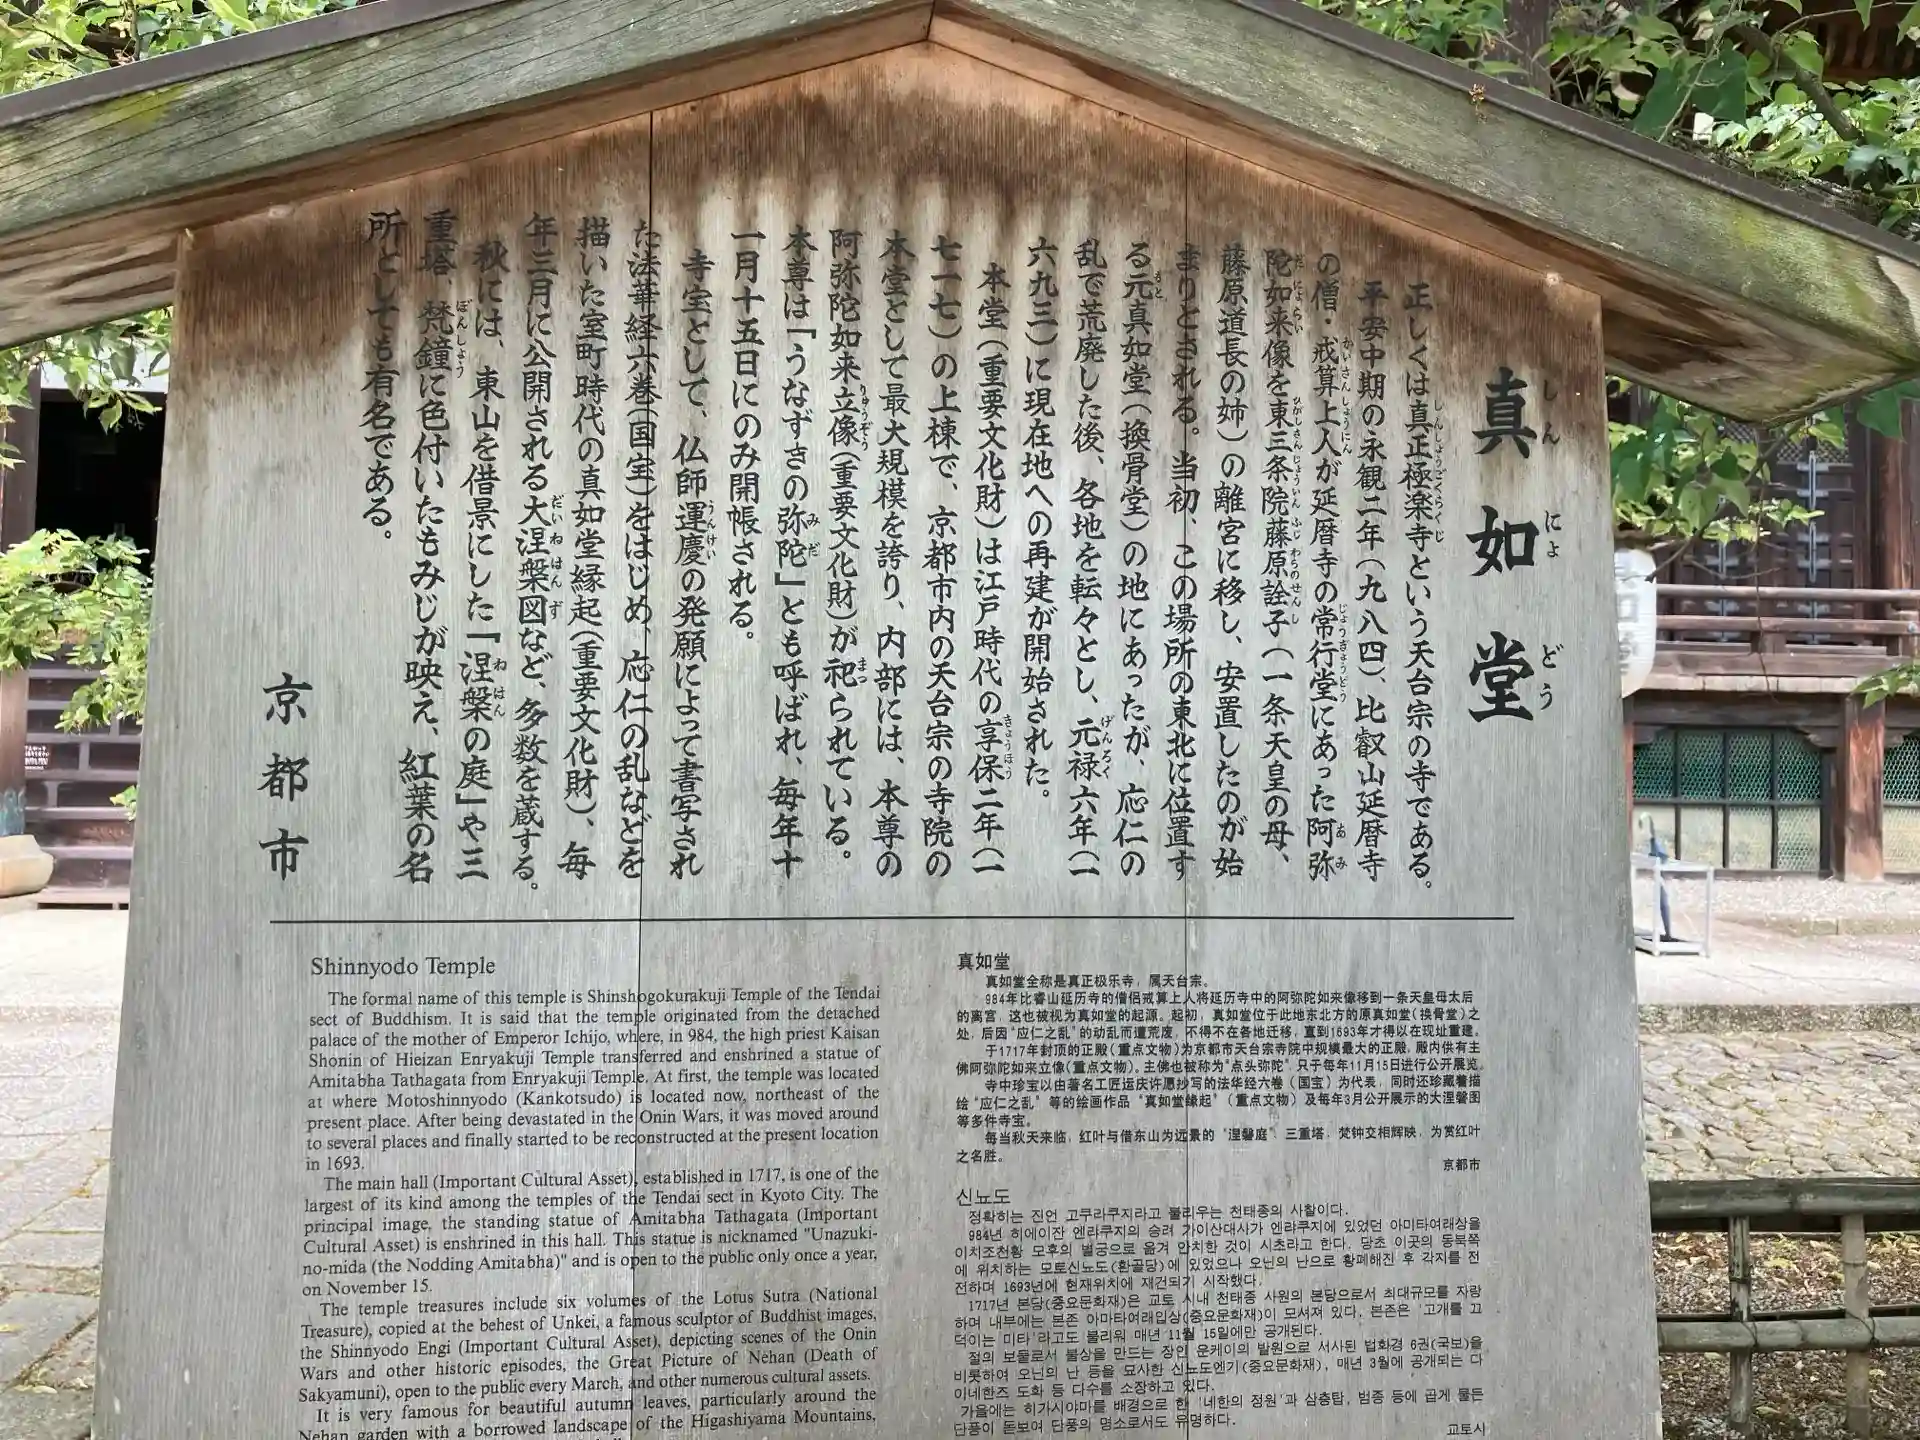 真如堂
しんにょどう
正しくは真正極楽寺という天台宗の寺である。
平安中期の永観二年(九八四)、比叡山延暦寺
の僧・戒算上人が延暦寺の常行堂にあった阿弥
陀如来像を東三条院藤原詮子(一条天皇の母、
藤原道長の姉)の離宮に移し、安置したのが始
まりとされる。当初、この場所の東北に位置す
る元真如堂(換骨堂)の地にあったが、応仁の
乱で荒廃した後、各地を転々とし、元禄六年(一
六九三)に現在地への再建が開始された。
本堂(重要文化財)は江戸時代の享保二年(一
七一七)の上棟で、京都市内の天台宗の寺院の
本堂として最大規模を誇り、内部には、本尊の
阿弥陀如来立像(重要文化財)が祀られている。
本尊は「うなずきの弥陀」とも呼ばれ、毎年十
一月十五日にのみ開帳される。
寺宝として、仏師運慶の発願によって書写され
た法華経六巻(国宝)をはじめ、応仁の乱などを
描いた室町時代の真如堂縁起(重要文化財)、毎
年三月に公開される大涅槃図など、多数を蔵する。
秋には、東山を借景にした「涅槃の庭」や三
重塔、梵鐘に色付いたもみじが映え、紅葉の名
所としても有名である。
京都市
Shinnyodo Temple
The formal name of this temple is Shinshogokurakuji Temple of the Tendai
sect of Buddhism. It is said that the temple originated from the detached
palace of the mother of Emperor Ichijo, where, in 984, the high priest Kaisan
Shonin of Hieizan Enryakuji Temple transferred and enshrined a statue of
Amitabha Tathagata from Enryakuji Temple. At first, the temple was located
at where Motoshinnyodo (Kankotsudo) is located now, northeast of the
present place. After being devastated in the Onin Wars, it was moved around
to several places and finally started to be reconstructed at the present location
in 1693.
The main hall (Important Cultural Asset), established in 1717, is one of the
largest of its kind among the temples of the Tendai sect in Kyoto City. The
principal image, the standing statue of Amitabha Tathagata (Important
Cultural Asset) is enshrined in this hall. This statue is nicknamed "Unazuki-
no-mida (the Nodding Amitabha)" and is open to the public only once a year,
on November 15.
The temple treasures include six volumes of the Lotus Sutra (National
Treasure), copied at the behest of Unkei, a famous sculptor of Buddhist images,
the Shinnyodo Engi (Important Cultural Asset), depicting scenes of the Onin
Wars and other historic episodes, the Great Picture of Nehan (Death of
Sakyamuni), open to the public every March, and other numerous cultural assets.
It is very famous for beautiful autumn leaves, particularly around the
Nehan garden with a borrowed landscape of the Higashiyama Mountains,
真如堂
真如堂全称是真正极乐寺，属天台宗。
984年比睿山延历寺的僧侣戒算上人将延历寺中的阿弥陀如来像移到一条天皇母太后
的离宫，这也被视为真如堂的起源。起初，真如堂位于此地东北方的原真如堂(换骨堂)之
处，后因"应仁之乱"的动乱而遭荒废，不得不在各地迁移，直到1693年才得以在现址重建。
于1717年封顶的正殿(重点文物)为京都市天台宗寺院中规模最大的正殿，殿内供有主
佛阿弥陀如来立像(重点文物)。主佛也被称为"点头弥陀"，只于每年11月15日进行公开展览。
寺中珍宝以由著名工匠运庆许愿抄写的法华经六卷(国宝)为代表，同时还珍藏着描
绘"应仁之乱"等的绘画作品"真如堂缘起"(重点文物)及每年3月公开展示的大涅磐图
等多件寺宝。
每当秋天来临，红叶与借东山为远景的"涅磐庭"，三重塔，梵钟交相辉映，为赏红叶
之名胜。
京都市
신뇨도
정확히는 진언 고쿠라쿠지라고 불리우는 천태종의 사찰이다.
984년 히에이잔 엔랴쿠지의 승려 가이산대사가 엔랴쿠지에 있었던 아미타여래상을
이치조천황 모후의 별궁으로 옮겨 안치한 것이 시초라고 한다. 당초 이곳의 동북쪽
에 위치하는 모토신뇨도(환골당)에 있었으나 오닌의 난으로 황폐해진 후 각지를 전
전하며 1693년에 현재위치에 재건되기 시작했다.
1717년 본당(중요문화재)은 교토 시내 천태종 사원의 본당으로서 최대규모를 자랑
하며 내부에는 본존 아마타여래입상(중요문화재)이 모셔져 있다. 본존은 '고개를 끄
덕이는 미타'라고도 불리워 매년 11월 15일에만 공개된다.
절의 보물로서 불상을 만드는 장인 운케이의 발원으로 서사된 법화경 6권(국보)을
비롯하여 오닌의 난 등을 묘사한 신뇨도엔기(중요문화재), 매년 3월에 공개되는 다
이네한즈 도화 등 다수를 소장하고 있다.
가을에는 히가시야마를 배경으로 한 '네한의 정원'과 삼층탑, 범종 등에 곱게 물든
단풍이 돋보여 단풍의 명소로서도 유명하다.
교토시